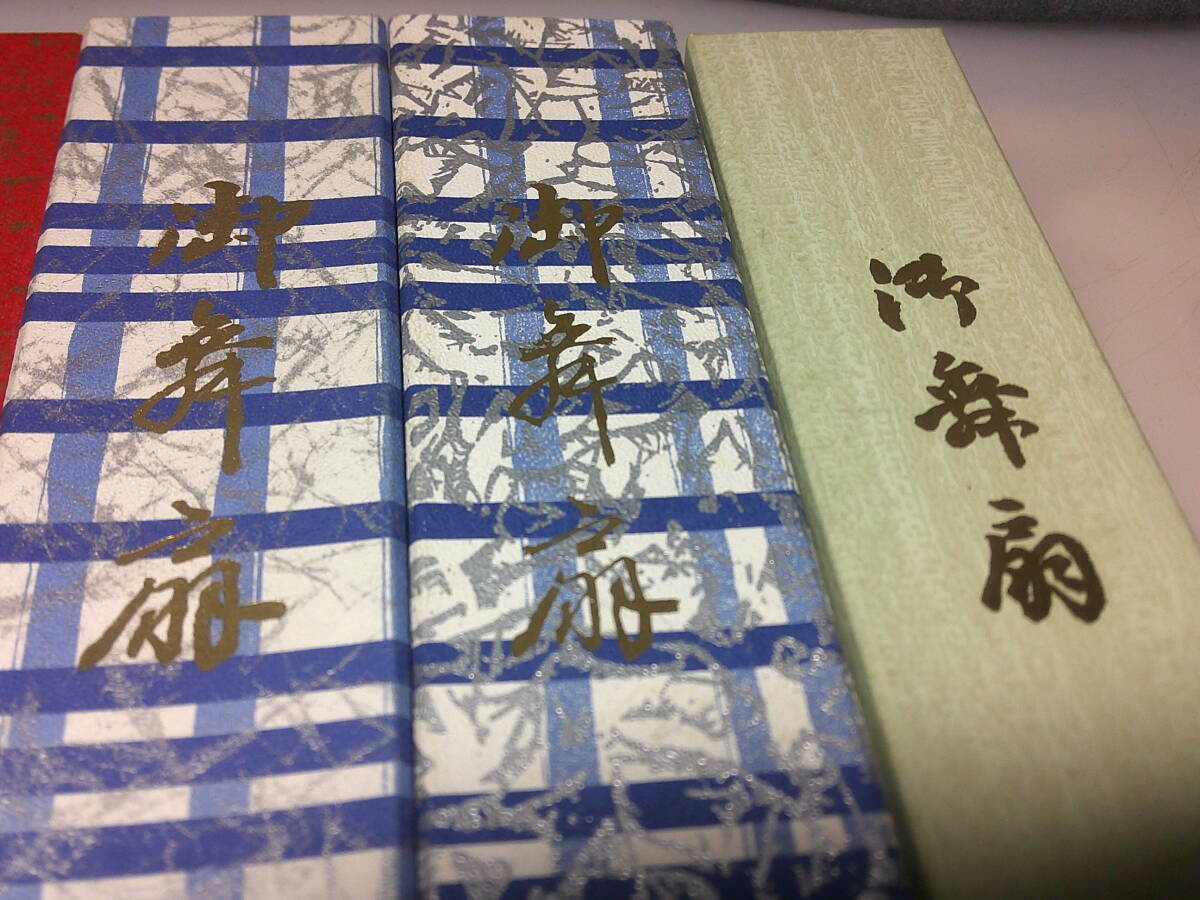 御舞扇
御舞扇
御舞扇